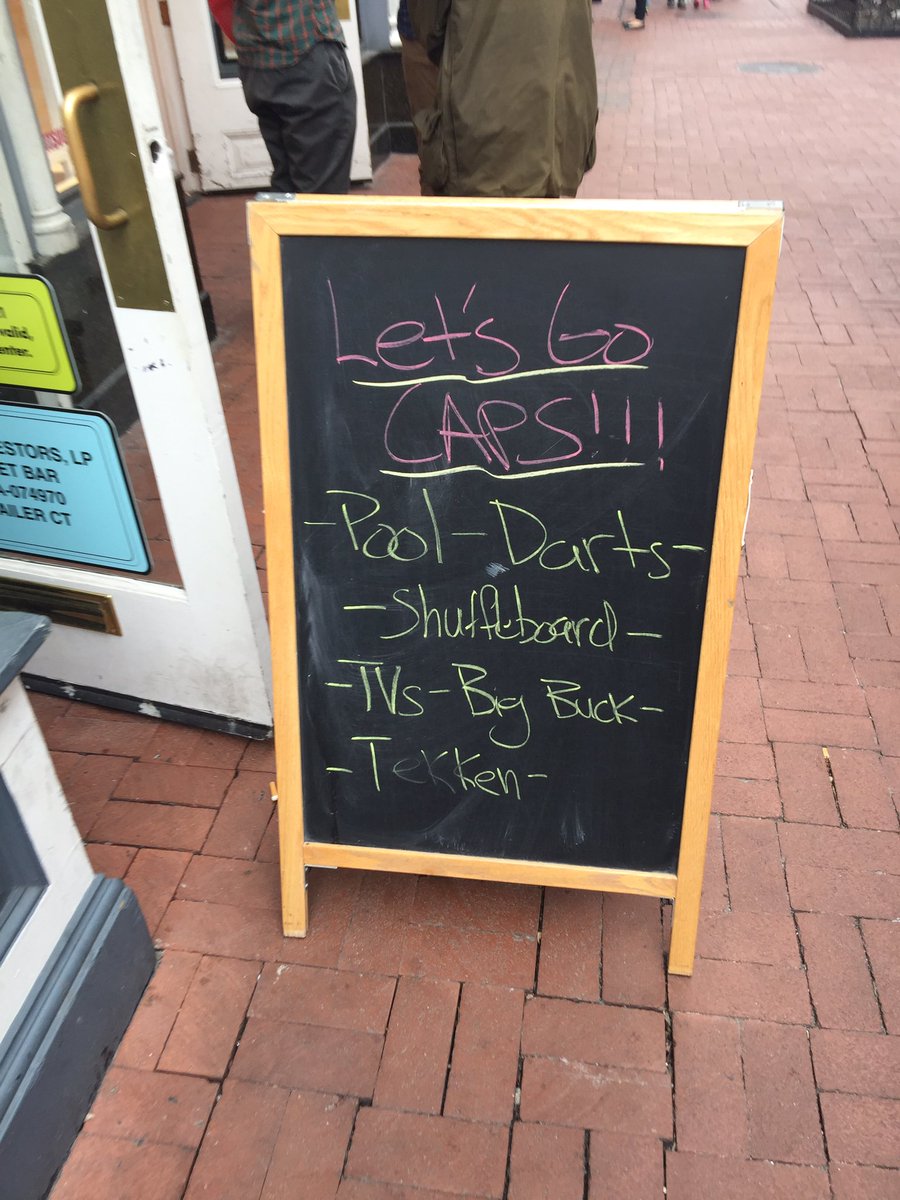 Let's Go
CAPS!!!
-Pool-Darts-
-Shuffleboard-
-TVs-Big Buck-
-Tekken-
valid,
enter.
ESTORS, LP
ET BAR
A-074970
AILER CT